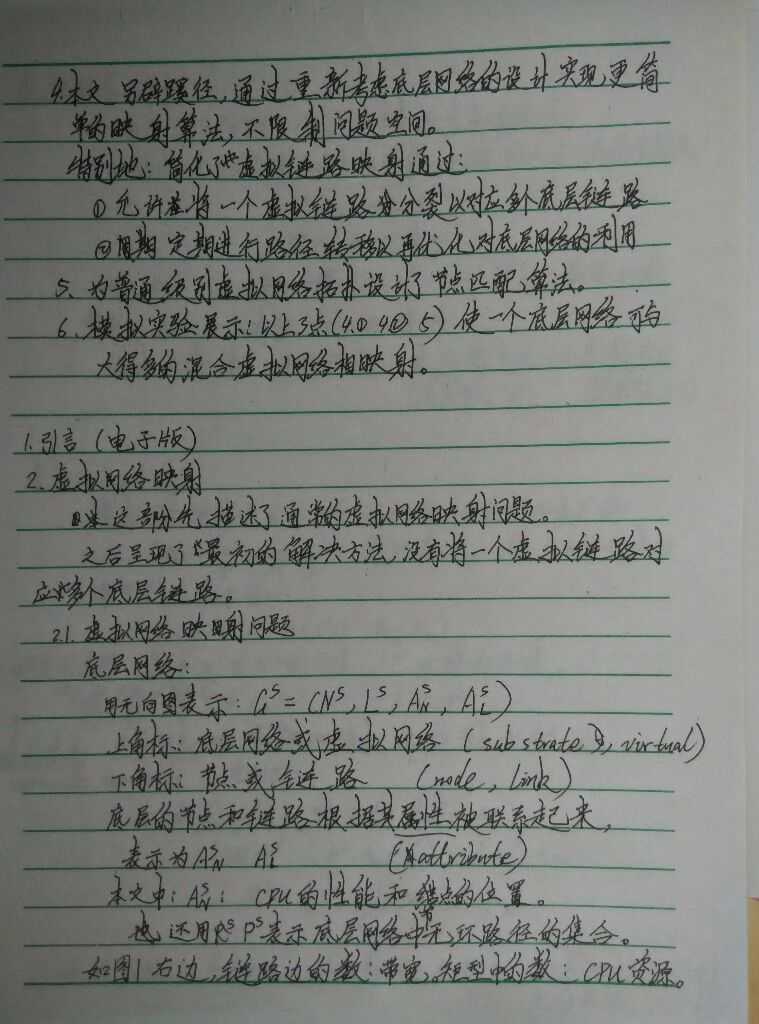 4.本文另辟蹊径,通过重新考虑底层网络的设计实现更简
单的映射算法,不限制问题空间。
特别地:简化了虚拟链路映射通过:
①允许将一个虚拟链路分裂以对应多个底层链路
②周期定期进行路径转移以再优化对底层网络的利用
5、为普通级别虚拟网络拓扑设计了节点匹配算法。
6、模拟实验展示:以上3点(4.① 4② 5)使一个底层网络可与
大得多的混合虚拟网络相映射。
1.引言(电子版)
2.虚拟网络映射
这部分先描述了通常的虚拟网络映射问题。
之后呈现了最初的解决方法,没有将一个虚拟链路对
应多个底层链路。
2.1.虚拟网络映射问题
底层网络:
用无向图表示:G^S=(N^S, L^S, A_N^S, A_L^S)
上角标:底层网络或虚拟网络(substrate, virtual)
下角标:节点或链路 (node, link)
底层的节点和链路根据其属性被联系起来,
表示为A_N^S A_L^S (attribute)
本文中:A_N^S:CPU的性能和节点的位置。
还用P^S表示底层网络中无环路径的集合。
如图1右边,链路边的数:带宽。矩型中的数:CPU资源。